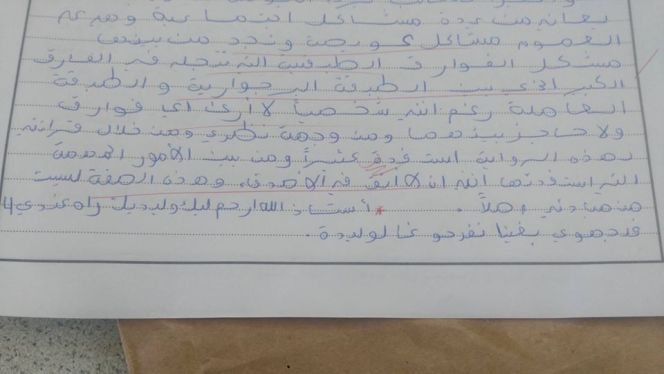 يعاني من عدة مشاكل اجتماعية وهي على
العموم مشاكل عويصة ونجد من بينها
مشكل الفوارق الطبقية التي تتجلى في الفارق
الكبير الذي بين الطبقة البرجوازية والطبقة
العاملة رغم انني شخصيا لا أرى أي فوارق
ولا حاجز بينهما ومن وجهة نظري ومن خلال قرائتي
لهذه الرواية استفدة كثيرا ومن بين الأمور المهمة
التي استفدتها أنني ان لا أثق في الأصدقاء وهذه الصفة ليست
من مبادئي أصلا . * أستاذ الله ارحم ليك الوليديك راه عندي 4
فدجهوي بغينا نفرحو غا الوليدة .